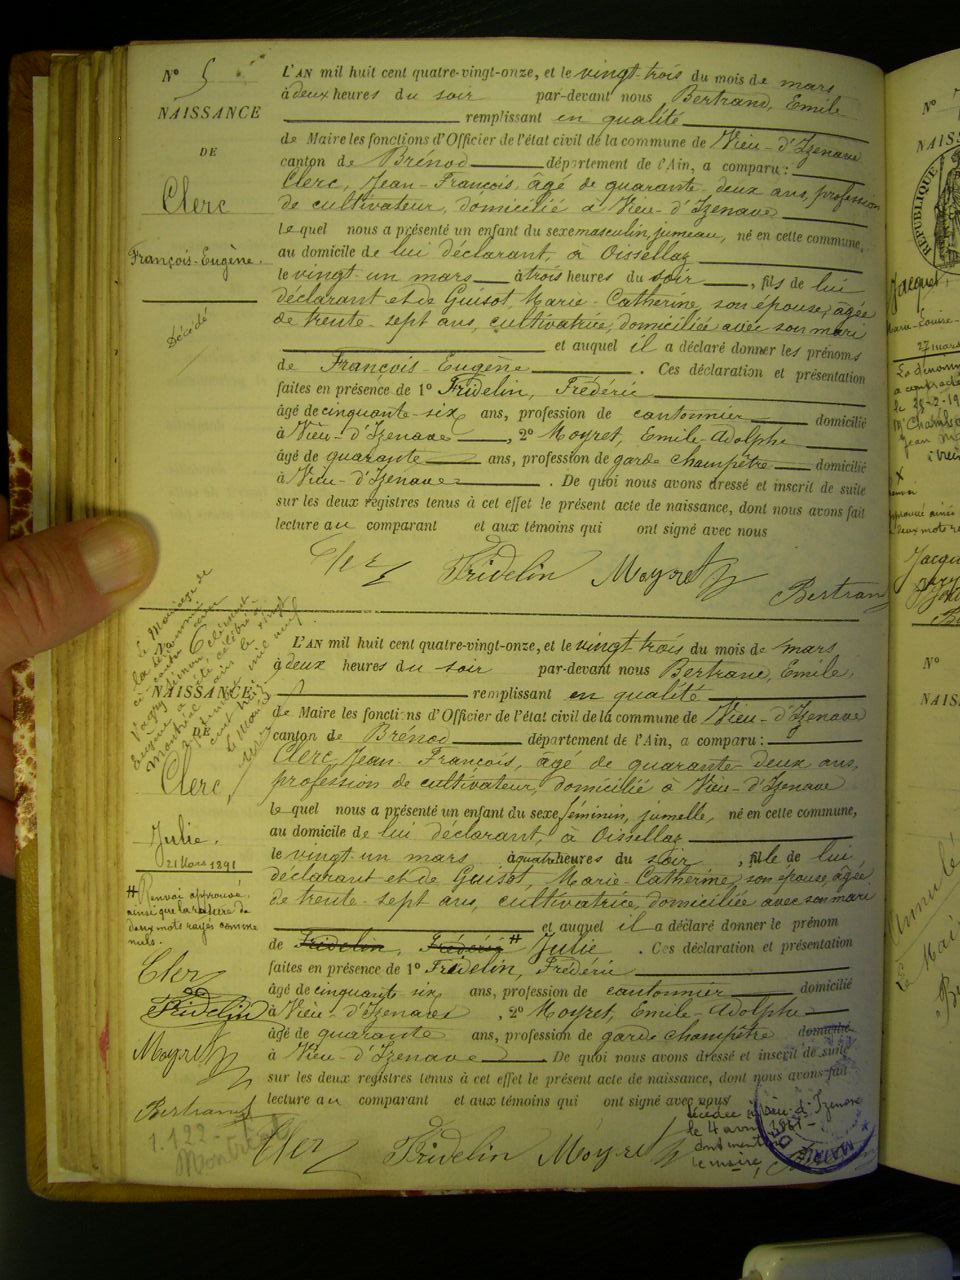 N° 5
NAISSANCE
DE
Clerc
François-Eugène.
Décédé
L'AN mil huit cent quatre-vingt-onze, et le vingt-trois du mois de mars
à deux heures du soir par-devant nous Bertrand, Emile
remplissant en qualité
de Maire les fonctions d'Officier de l'état civil de la commune de Vieu-d'Izenave
canton de Brénod département de l'Ain, a comparu :
Clerc, Jean-François, âgé de quarante-deux ans, profession
de cultivateur, domicilié à Vieu-d'Izenave
lequel nous a présenté un enfant du sexe masculin, jumeau, né en cette commune,
au domicile de lui déclarant, à Oissellaz
le vingt-un mars à trois heures du soir, fils de lui
déclarant et de Guisot Marie-Catherine, son épouse, âgée
de trente-sept ans, cultivatrice, domiciliée avec son mari
et auquel il a déclaré donner les prénoms
de François-Eugène. Ces déclaration et présentation
faites en présence de 1° Fridelin, Frédéric
âgé de cinquante-six ans, profession de cantonnier domicilié
à Vieu-d'Izenave, 2° Moyret, Emile-Adolphe
âgé de quarante ans, profession de garde champêtre domicilié
à Vieu-d'Izenave. De quoi nous avons dressé et inscrit de suite
sur les deux registres tenus à cet effet le présent acte de naissance, dont nous avons fait
lecture au comparant et aux témoins qui ont signé avec nous
Clerc Fridelin Moyret Bertrand
Le Mariage de
la dénommée
NAISSANCE
DE
Clerc
Julie.
21 Mars 1891
Renvoi approuvé
ainsi que la rature de
deux mots rayés comme
nuls.
Clerc
Fridelin
Moyret
Bertrand
1.122-
Montréal
L'AN mil huit cent quatre-vingt-onze, et le vingt-trois du mois de mars
à deux heures du soir par-devant nous Bertrand, Emile,
remplissant en qualité
de Maire les fonctions d'Officier de l'état civil de la commune de Vieu-d'Izenave
canton de Brénod département de l'Ain, a comparu :
Clerc, Jean-François, âgé de quarante-deux ans,
profession de cultivateur, domicilié à Vieu-d'Izenave
lequel nous a présenté un enfant du sexe féminin, jumelle, né en cette commune,
au domicile de lui déclarant, à Oissellaz
le vingt-un mars à quatre heures du soir, fille de lui,
déclarant et de Guisot, Marie-Catherine, son épouse, âgée
de trente-sept ans, cultivatrice, domiciliée avec son mari
et auquel il a déclaré donner le prénom
de Fridelin, Frédéric Julie. Ces déclaration et présentation
faites en présence de 1° Fridelin, Frédéric
âgé de cinquante-six ans, profession de cantonnier domicilié
à Vieu-d'Izenave, 2° Moyret, Emile-Adolphe
âgé de quarante ans, profession de garde champêtre domicilié
à Vieu-d'Izenave. De quoi nous avons dressé et inscrit de suite
sur les deux registres tenus à cet effet le présent acte de naissance, dont nous avons fait
lecture au comparant et aux témoins qui ont signé avec nous
Clerc Fridelin Moyret
décédée à Vieu-d'Izenave
le 4 avril 1981-
dont mention
le maire,
MAIRIE
N°
NAISS
RÉPUBLIQUE
Jacquet
Marie-Louise
27 mars
N°
NAISS
Annulé
Le Maire